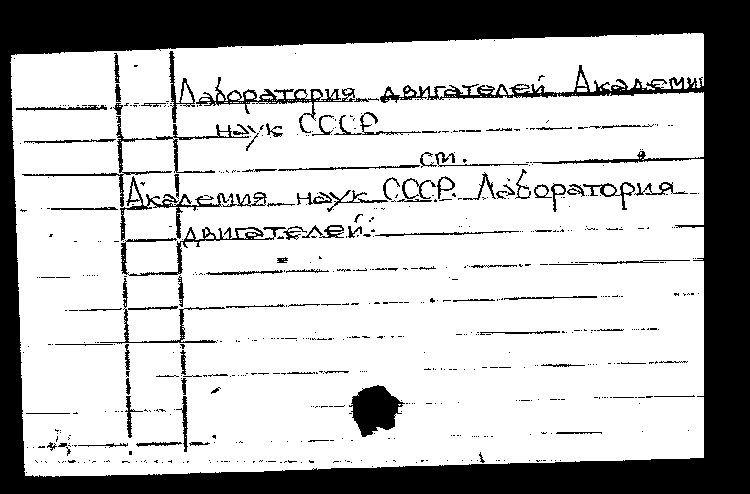 Лаборатория двигателей Академии
наук СССР
см.
Академия наук СССР. Лаборатория
двигателей.